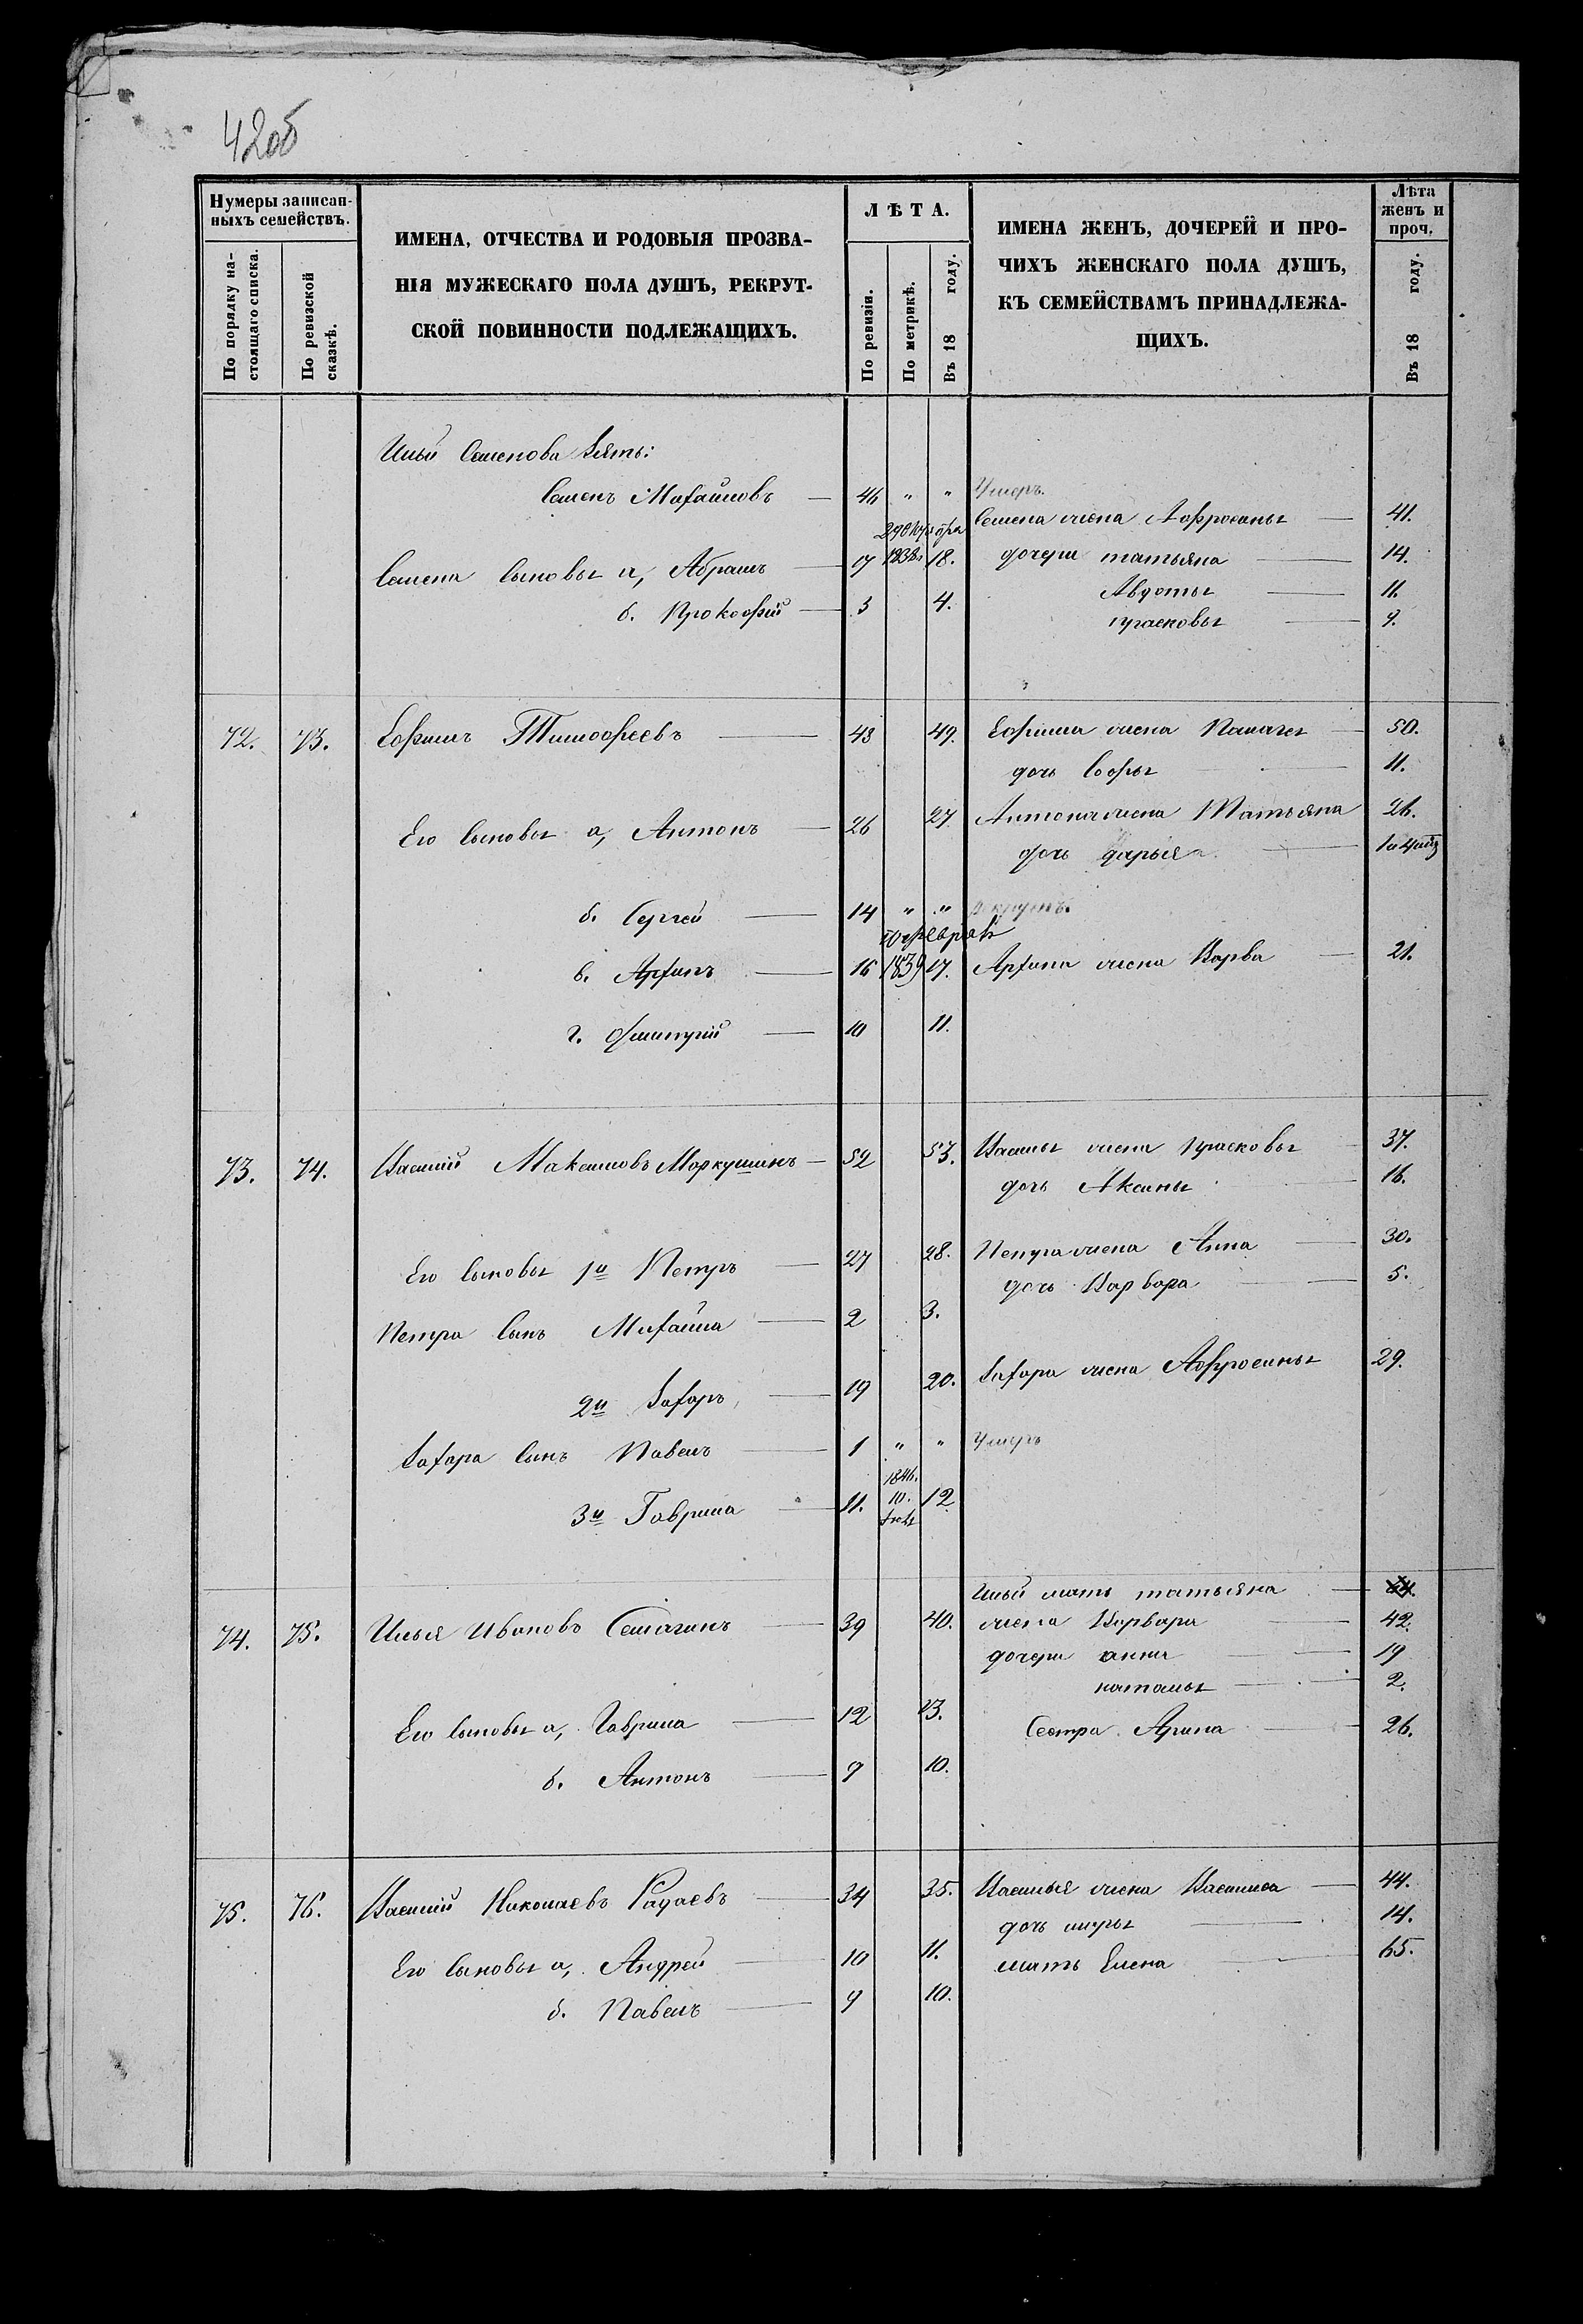 42об
Нумеры записан-
ныхъ семействъ.
По порядку на-
стоящаго списка.
По ревизской
сказкѣ.
ИМЕНА, ОТЧЕСТВА И РОДОВЫЯ ПРОЗВА-
НІЯ МУЖЕСКАГО ПОЛА ДУШЪ, РЕКРУТ-
СКОЙ ПОВИННОСТИ ПОДЛЕЖАЩИХЪ.
ЛѢТА.
По ревизіи.
По метрикѣ.
Въ 18 году.
ИМЕНА ЖЕНЪ, ДОЧЕРЕЙ И ПРО-
ЧИХЪ ЖЕНСКАГО ПОЛА ДУШЪ,
КЪ СЕМЕЙСТВАМЪ ПРИНАДЛЕЖА-
ЩИХЪ.
Лѣта
женъ и
проч.
Въ 18 году.
Ильи Семенова Зять:
Семенъ Михайловъ — 46 " " Умеръ.
Семена жена Афросинья — 41.
Семена Сыновья а, Абрамъ — 17 1838 18. дочери татьяна — 14.
Авдотья — 11.
б. Прокофій — 3 4. прасковья — 9.
72. 73. Ефимъ Тимофеевъ — 48 49. Ефима жена Пелагея — 50.
дочь Софья — 11.
Его Сыновья а, Антонъ — 26 27 Антона жена Татьяна 26.
дочь дарья —
б. Сергей — 14 " "
февраля
в. Архипъ — 16 1839 17. Архипа жена Варва — 21.
г. дмитрій — 10 11.
73. 74. Василий Максимовъ Моркушинъ — 52 53. Василья жена прасковья 37.
дочь Аксинья — 16.
Его Сыновья 1й Петръ — 27 28. Петра жена Анна — 30.
дочь Варвара — 5.
Петра Сынъ Михайла — 2 3.
2й Захаръ — 19 20. Захара жена Афросинья 29.
Захара Сынъ Павелъ — 1 " " Умеръ
3й Гаврила — 11. 1846. 10. 12
Ильи мать татьяна —
74. 75. Илья Ивановъ Семагинъ — 39 40. жена Варвара — 42.
дочери анна — 19
наталья — 2.
Его Сыновья а, Гаврила — 12 13. Сестра Арина — 26.
б. Антонъ — 9 10.
75. 76. Василий Николаевъ Радаевъ — 34 35. Василья жена Василиса — 44.
дочь — 14.
Его Сыновья а, Андрей — 10 11. мать Елена — 65.
б. Павелъ — 9 10.